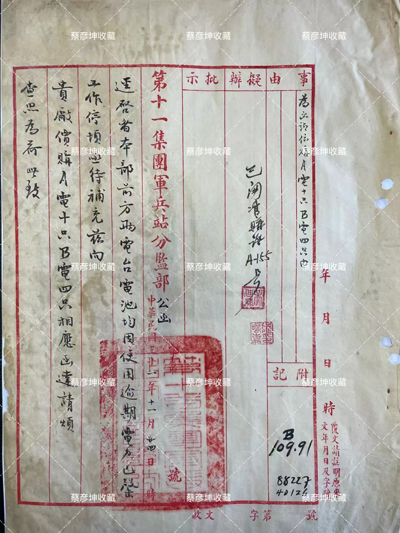 事由擬辦批示
為函請價購A電十只B電四只由
已開資購證
A-155号
年 月 日 時
附記
B
109.91
88227
40126
復文請註明原
文年月日及字號
收文 字第 號
第十一集團軍兵站分監部公函
中華民國三十一年十一月廿四日
號
逕啓者本部前方兩電台電池均因使用逾期電力已罄
工作停頓亟待補充茲向
貴廠價購A電十只B電四只相應函達請煩
查照為荷此致
蔡彦坤收藏